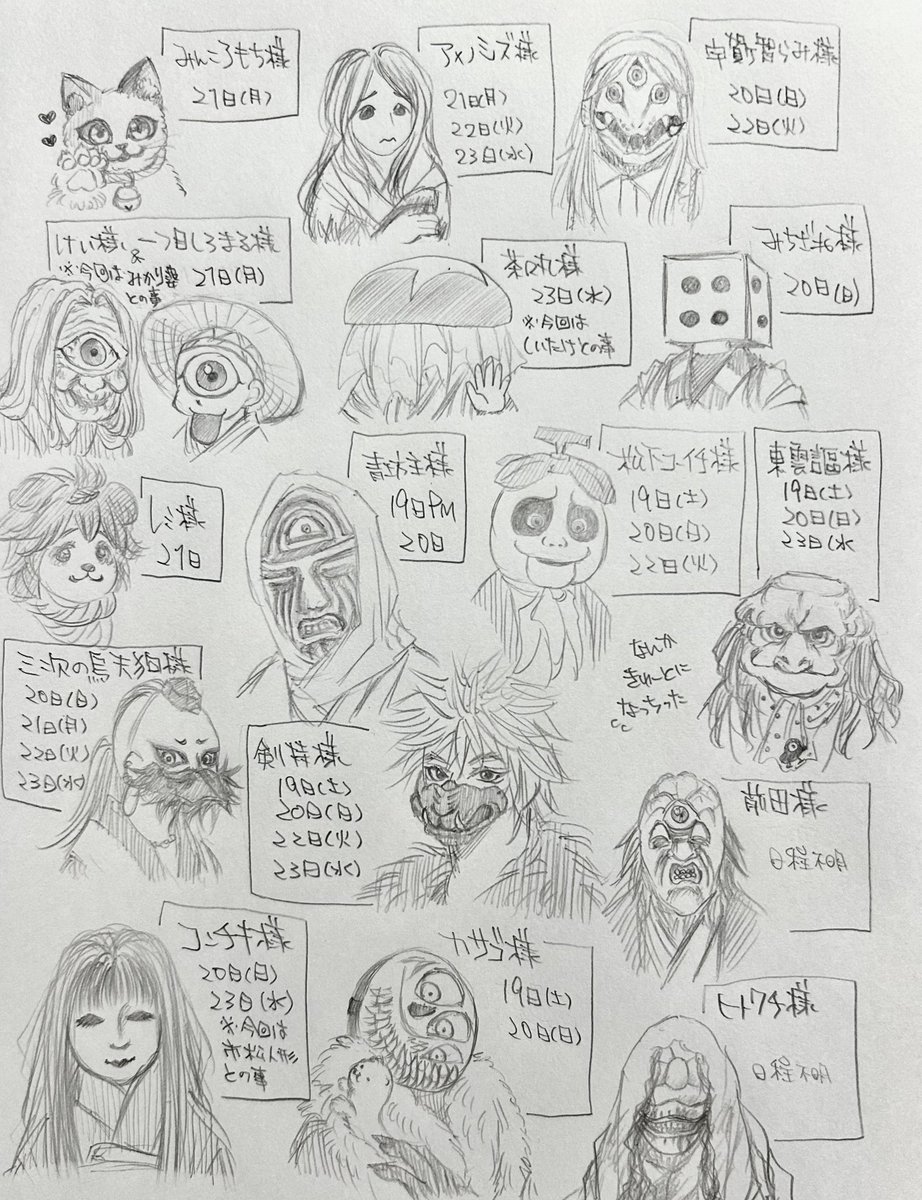 みんころもち様
21日(月)
アメノシズ様
21日(月)
22日(火)
23日(水)
宇賀智らみ様
20日(日)
22日(火)
けい様&一つ目しろまる様
※今回はみかり婆
との事
21日(月)
茶々丸様
23日(水)
※今回は
しいたけとの事
みちざね様
20日(日)
レミ様
21日
青坊主様
19日PM
20日
松下コーイチ様
19日(土)
20日(日)
22日(火)
東雲謳様
19日(土)
20日(日)
23日(水
なんか
きゅーとに
なっちった
三次の烏天狗様
20日(日)
21日(月)
22日(火)
23日(水)
剣持様
19日(土)
20日(日)
22日(火)
23日(水)
前田様
日程不明
コンチキ様
20日(日)
23日(水)
※今回は
市松人形
との事
カサゴ様
19日(土)
20日(日)
ヒトクチ様
日程不明